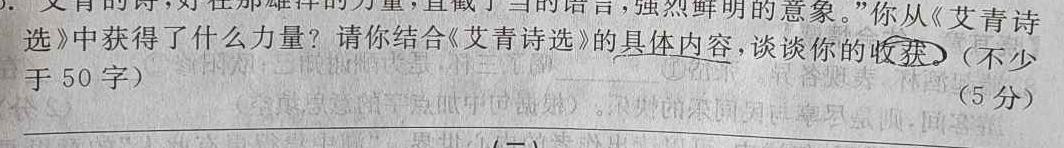 艾青的诗,好在那雄浑的力量,直截了当的语言,强烈鲜明的意象。”你从《艾青诗
选》中获得了什么力量?请你结合《艾青诗选》的具体内容,谈谈你的收获。(不少
于50字)
(5分)
(二)